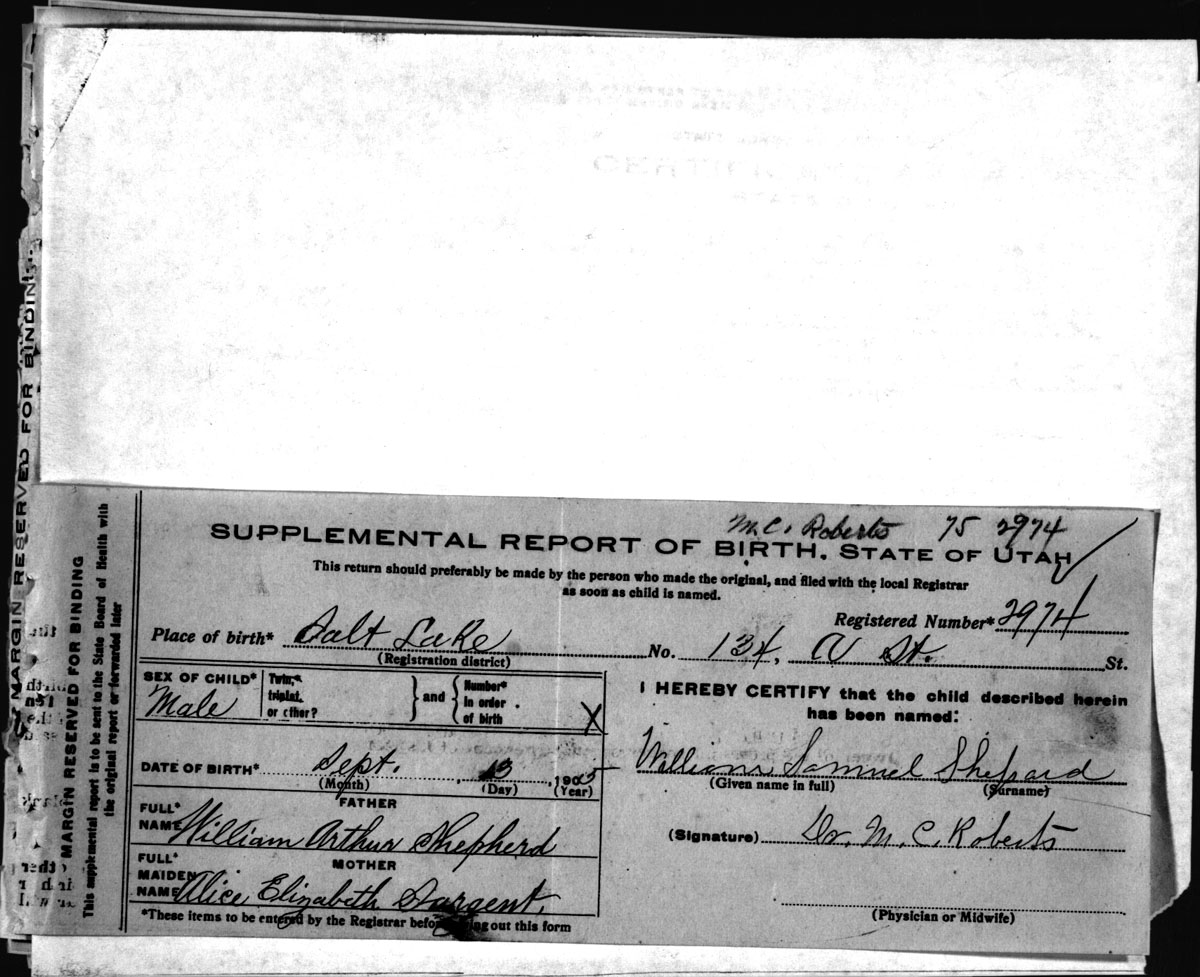 M.C. Roberts 75 2974
SUPPLEMENTAL REPORT OF BIRTH, STATE OF UTAH
This return should preferably be made by the person who made the original, and filed with the local Registrar
as soon as child is named.
Registered Number* 2974
Place of birth* Salt Lake No. 134, A St. St.
(Registration district)
SEX OF CHILD* Male
Twin,* triplet, or other? } and { Number* in order of birth X
I HEREBY CERTIFY that the child described herein
has been named:
DATE OF BIRTH* Sept. 13, 1905
(Month) (Day) (Year)
William Samuel Shepard
(Given name in full) (Surname)
FATHER
FULL* NAME William Arthur Shepherd
(Signature) Dr. M. C. Roberts
MOTHER
FULL* MAIDEN NAME Alice Elizabeth Sargent.
(Physician or Midwife)
*These items to be entered by the Registrar out this form
MARGIN RESERVED FOR BINDING
This supplemental report is to be sent to the State Board of Health with
the original report or forwarded later
MARGIN RESERVED FOR